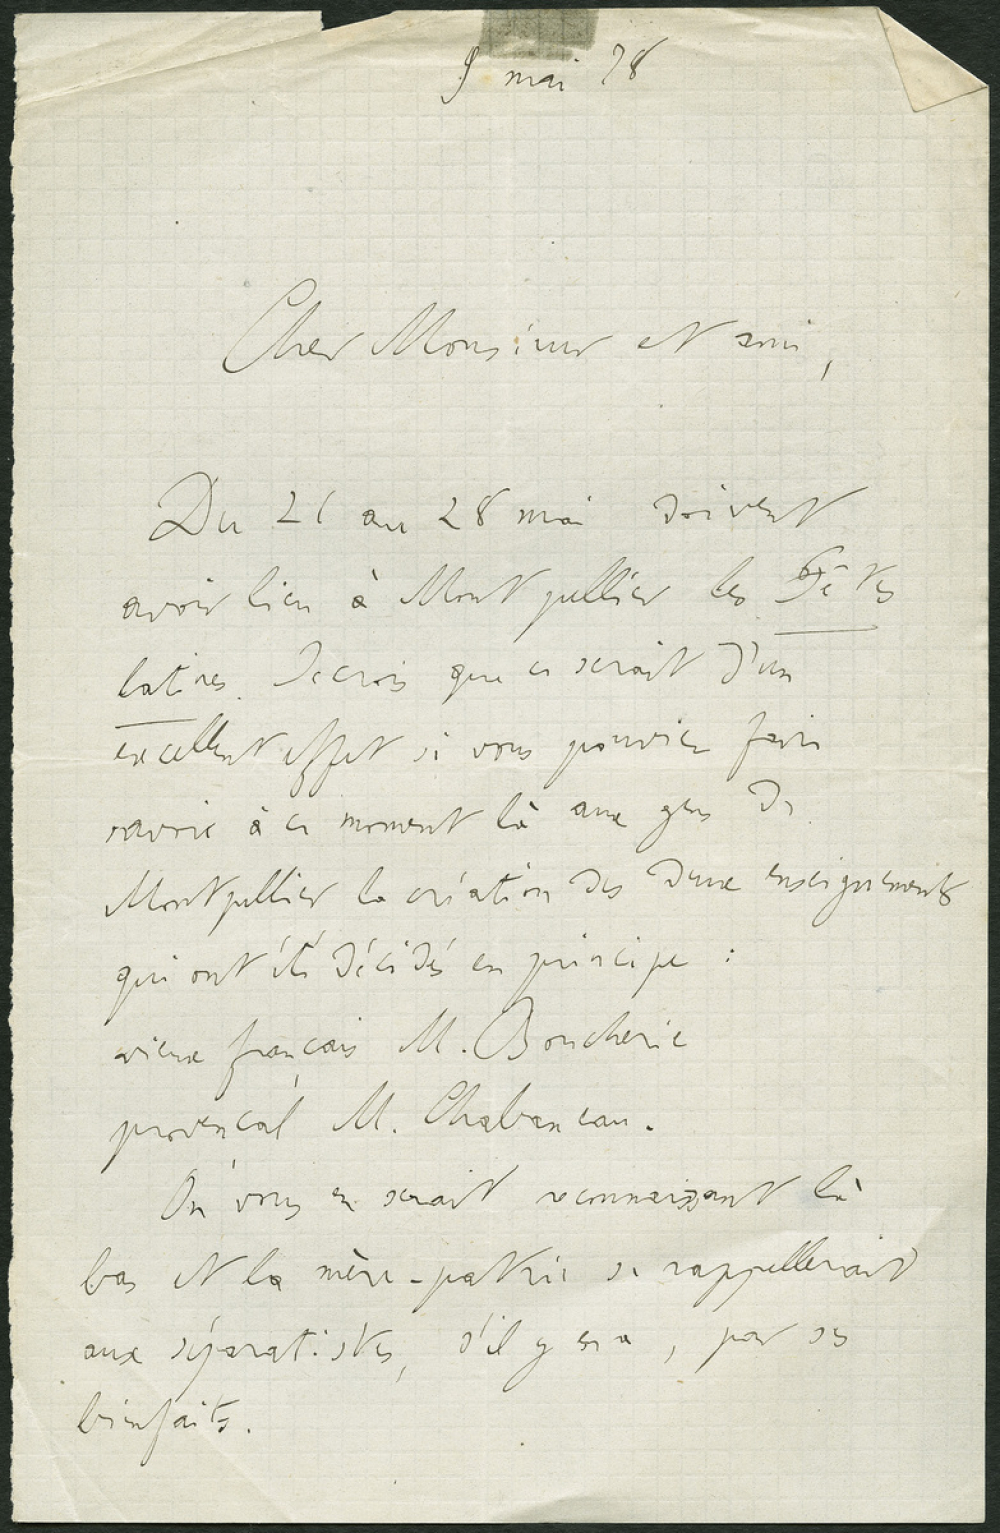 9 mai 78
Cher Monsieur et ami,
Du 21 au 28 mai doivent
avoir lieu à Montpellier les Fêtes
latines. Je crois que ce serait d'un
excellent effet si vous pouviez faire
savoir à ce moment là aux gens de
Montpellier la création des deux enseignements
qui ont été décidés en principe :
vieux français M. Boucherie
provençal M. Chabaneau.
On vous en serait reconnaissant là
bas et la mère-patrie se rappellerait
aux séparatistes, s'il y en a, par ses
bienfaits.